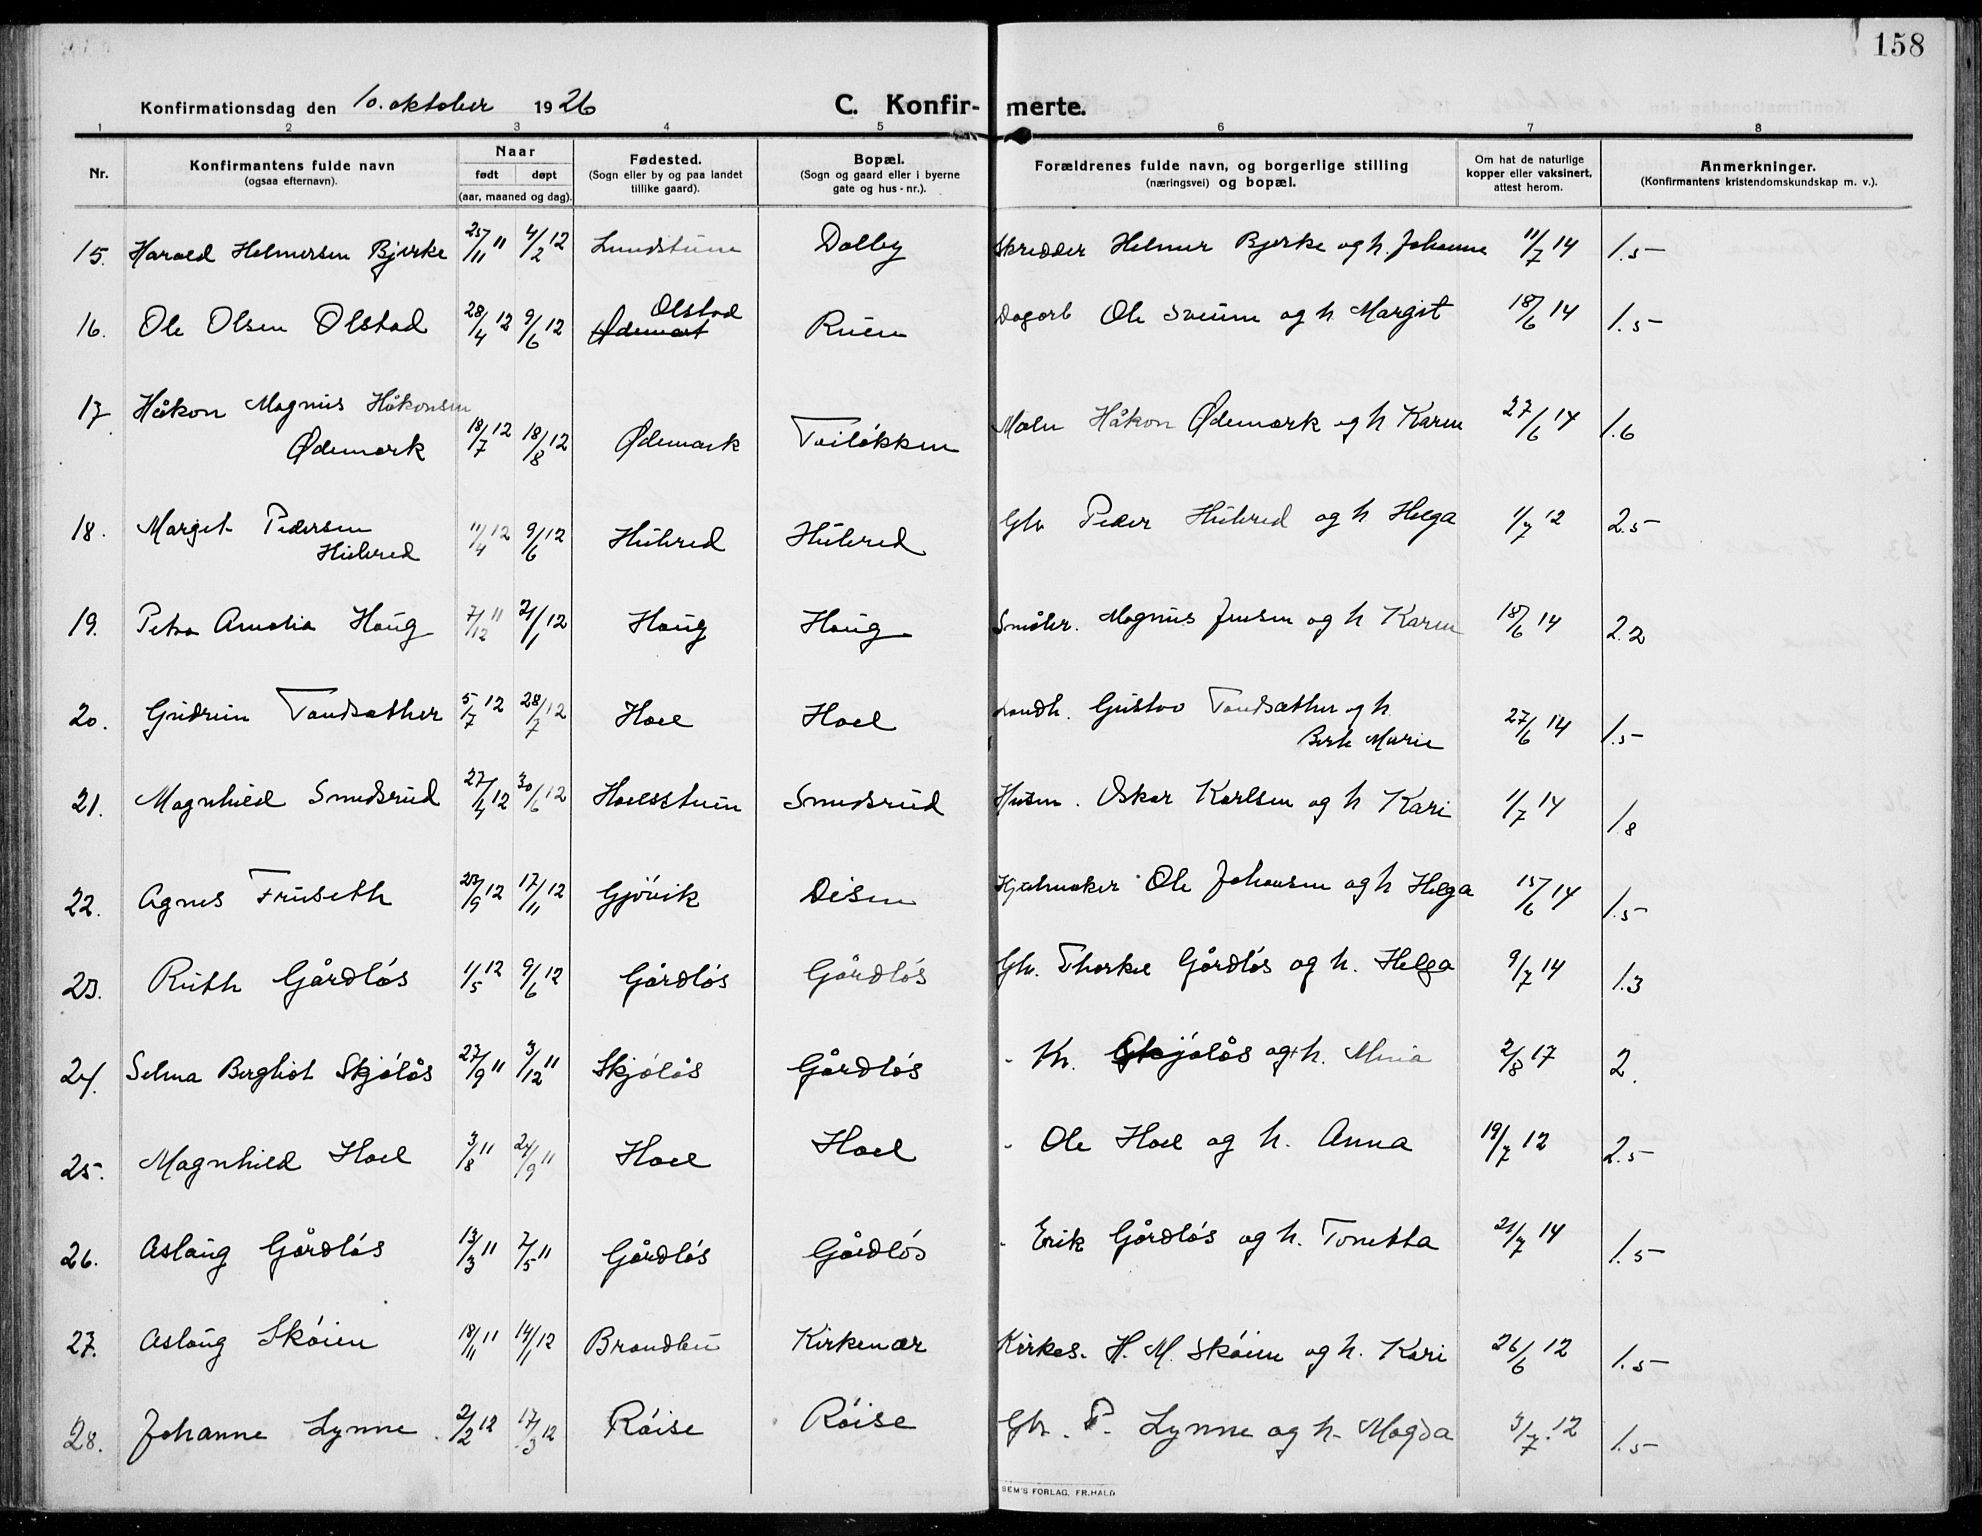 158
Konfirmationsdag den 10. oktober 1926 C. Konfirmerte.
1 2 3 4 5 6 7 8
Nr.
Konfirmantens fulde navn
(ogsaa efternavn).
Naar
født døpt
(aar, maaned og dag).
Fødested.
(Sogn eller by og paa landet
tillike gaard).
Bopæl.
(Sogn og gaard eller i byerne
gate og hus-nr.).
Forældrenes fulde navn, og borgerlige stilling
(næringsvei) og bopæl.
Om hat de naturlige
kopper eller vaksinert,
attest herom.
Anmerkninger.
(Konfirmantens kristendomskundskap m. v.).
15. Harald Helmersen Bjerke 25/11 11 4/2 12 Lundstuen Dalby Skredder Helmer Bjerke og h. Johanne 11/7 14 1.5
Olstad
16. Ole Olsen Olstad 28/4 12 9/6 12 Ødemark Ruen Dagarb Ole Sveum og h Margit 18/6 14 1.5
17. Håkon Magnus Håkonsen
Ødemark 18/7 12 18/8 12 Ødemark Toiløkken Maler Håkon Ødemark og h Karen 27/6 14 1.6
18. Marget Pedersen
Hubred 11/4 12 9/6 12 Hubred Hubred Gbr Peder Hubred og h Helga 1/7 12 2.5
19. Petra Amalia Haug 7/12 11 21/1 12 Haug Haug Småbr. Magnus Jensen og h Karen 18/6 14 2.2
20. Gudrun Tandsæther 5/7 12 28/7 12 Hoel Hoel Landh. Gustav Tandsæther og h.
Berte Marie 27/6 14 1.5
21. Magnhild Smedsrud 27/4 12 30/6 12 Hoelsstuen Smedsrud Husm. Oskar Karlsen og h Kari 1/7 14 1.8
22. Agnes Fruseth 23/9 12 17/11 12 Gjövik Disen Hjulmaker Ole Johansen og h Helga 15/6 14 1.5
23. Ruth Gårdløs 1/5 12 9/6 12 Gårdløs Gårdløs Gbr. Thorkel Gårdløs og h. Helga 9/7 14 1.3
24. Selma Bergliot Skjølås 27/9 11 3/12 11 Skjølås Gårdløs - Kr. Skjølås og h. Mina 2/8 17 2.
25. Magnhild Hoel 3/8 11 24/9 11 Hoel Hoel - Ole Hoel og h. Anna 19/7 12 2.5
26. Aslaug Gårdløs 13/3 11 7/5 11 Gårdløs Gårdløs - Erik Gårdløs og h. Tonetta 21/7 14 1.5
27. Aslaug Skøien 18/11 11 14/1 12 Brandbu Kirkenær Kirkes. H. M. Skøien og h. Kari 26/6 12 1.5
28. Johanne Lynne 2/2 12 17/3 12 Røise Røise Gbr. P. Lynne og h. Magda 3/7 12 1.5
SEM'S FORLAG, FR.HALD